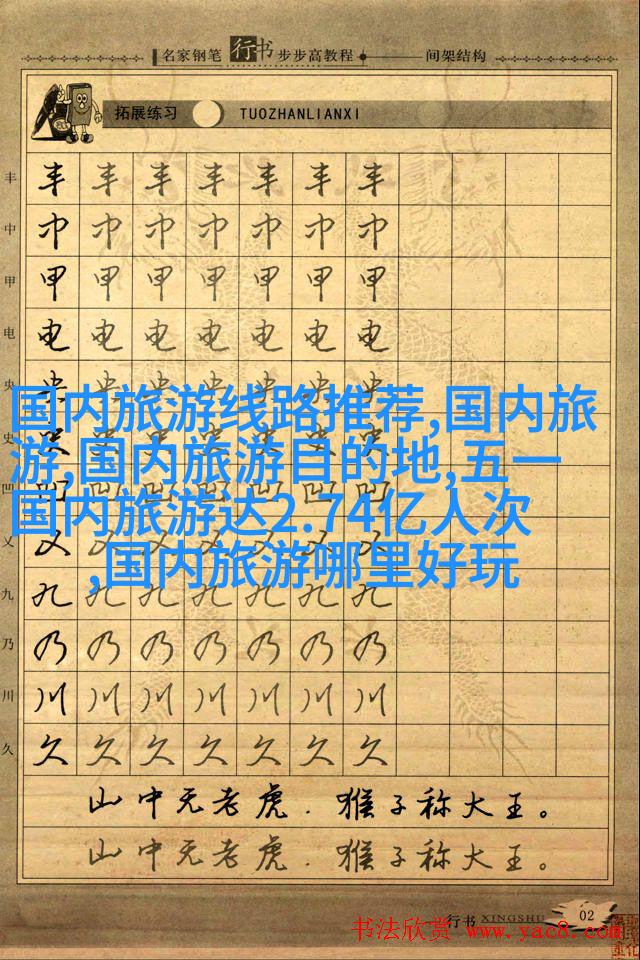 名家钢笔行书步步高教程 间架结构
拓展练习 TUOZHANLIANXI
丰 丰 丰 丰 丰 丰 丰 丰
中 中 中 中 中 中 中 中
甲 甲 甲 甲 甲 甲 甲 甲
电 电 电 电 电 电 电 电
央 央 央 央 央 央 央 央
国内旅游线路推荐,国内旅
史 史 史 史 史 史 史 史
游,国内旅游目的地,五一
凹 凹 凹 凹 凹 凹 凹 凹
国内旅游达2.74亿人次
乂 乂 乂 乂 乂 乂 乂 乂
,国内旅游哪里好玩
九 九 九 九 九 九 九 九
乃 乃 乃 乃 乃 乃 乃 乃
川 川 川 川 川 川 川 川
久 久 久 久 久 久 久 久
山中无老虎.猴子称大王。
山中无老虎.猴子称大王。
行书 XINGSHU 02
书法欣赏 www.yac8.com